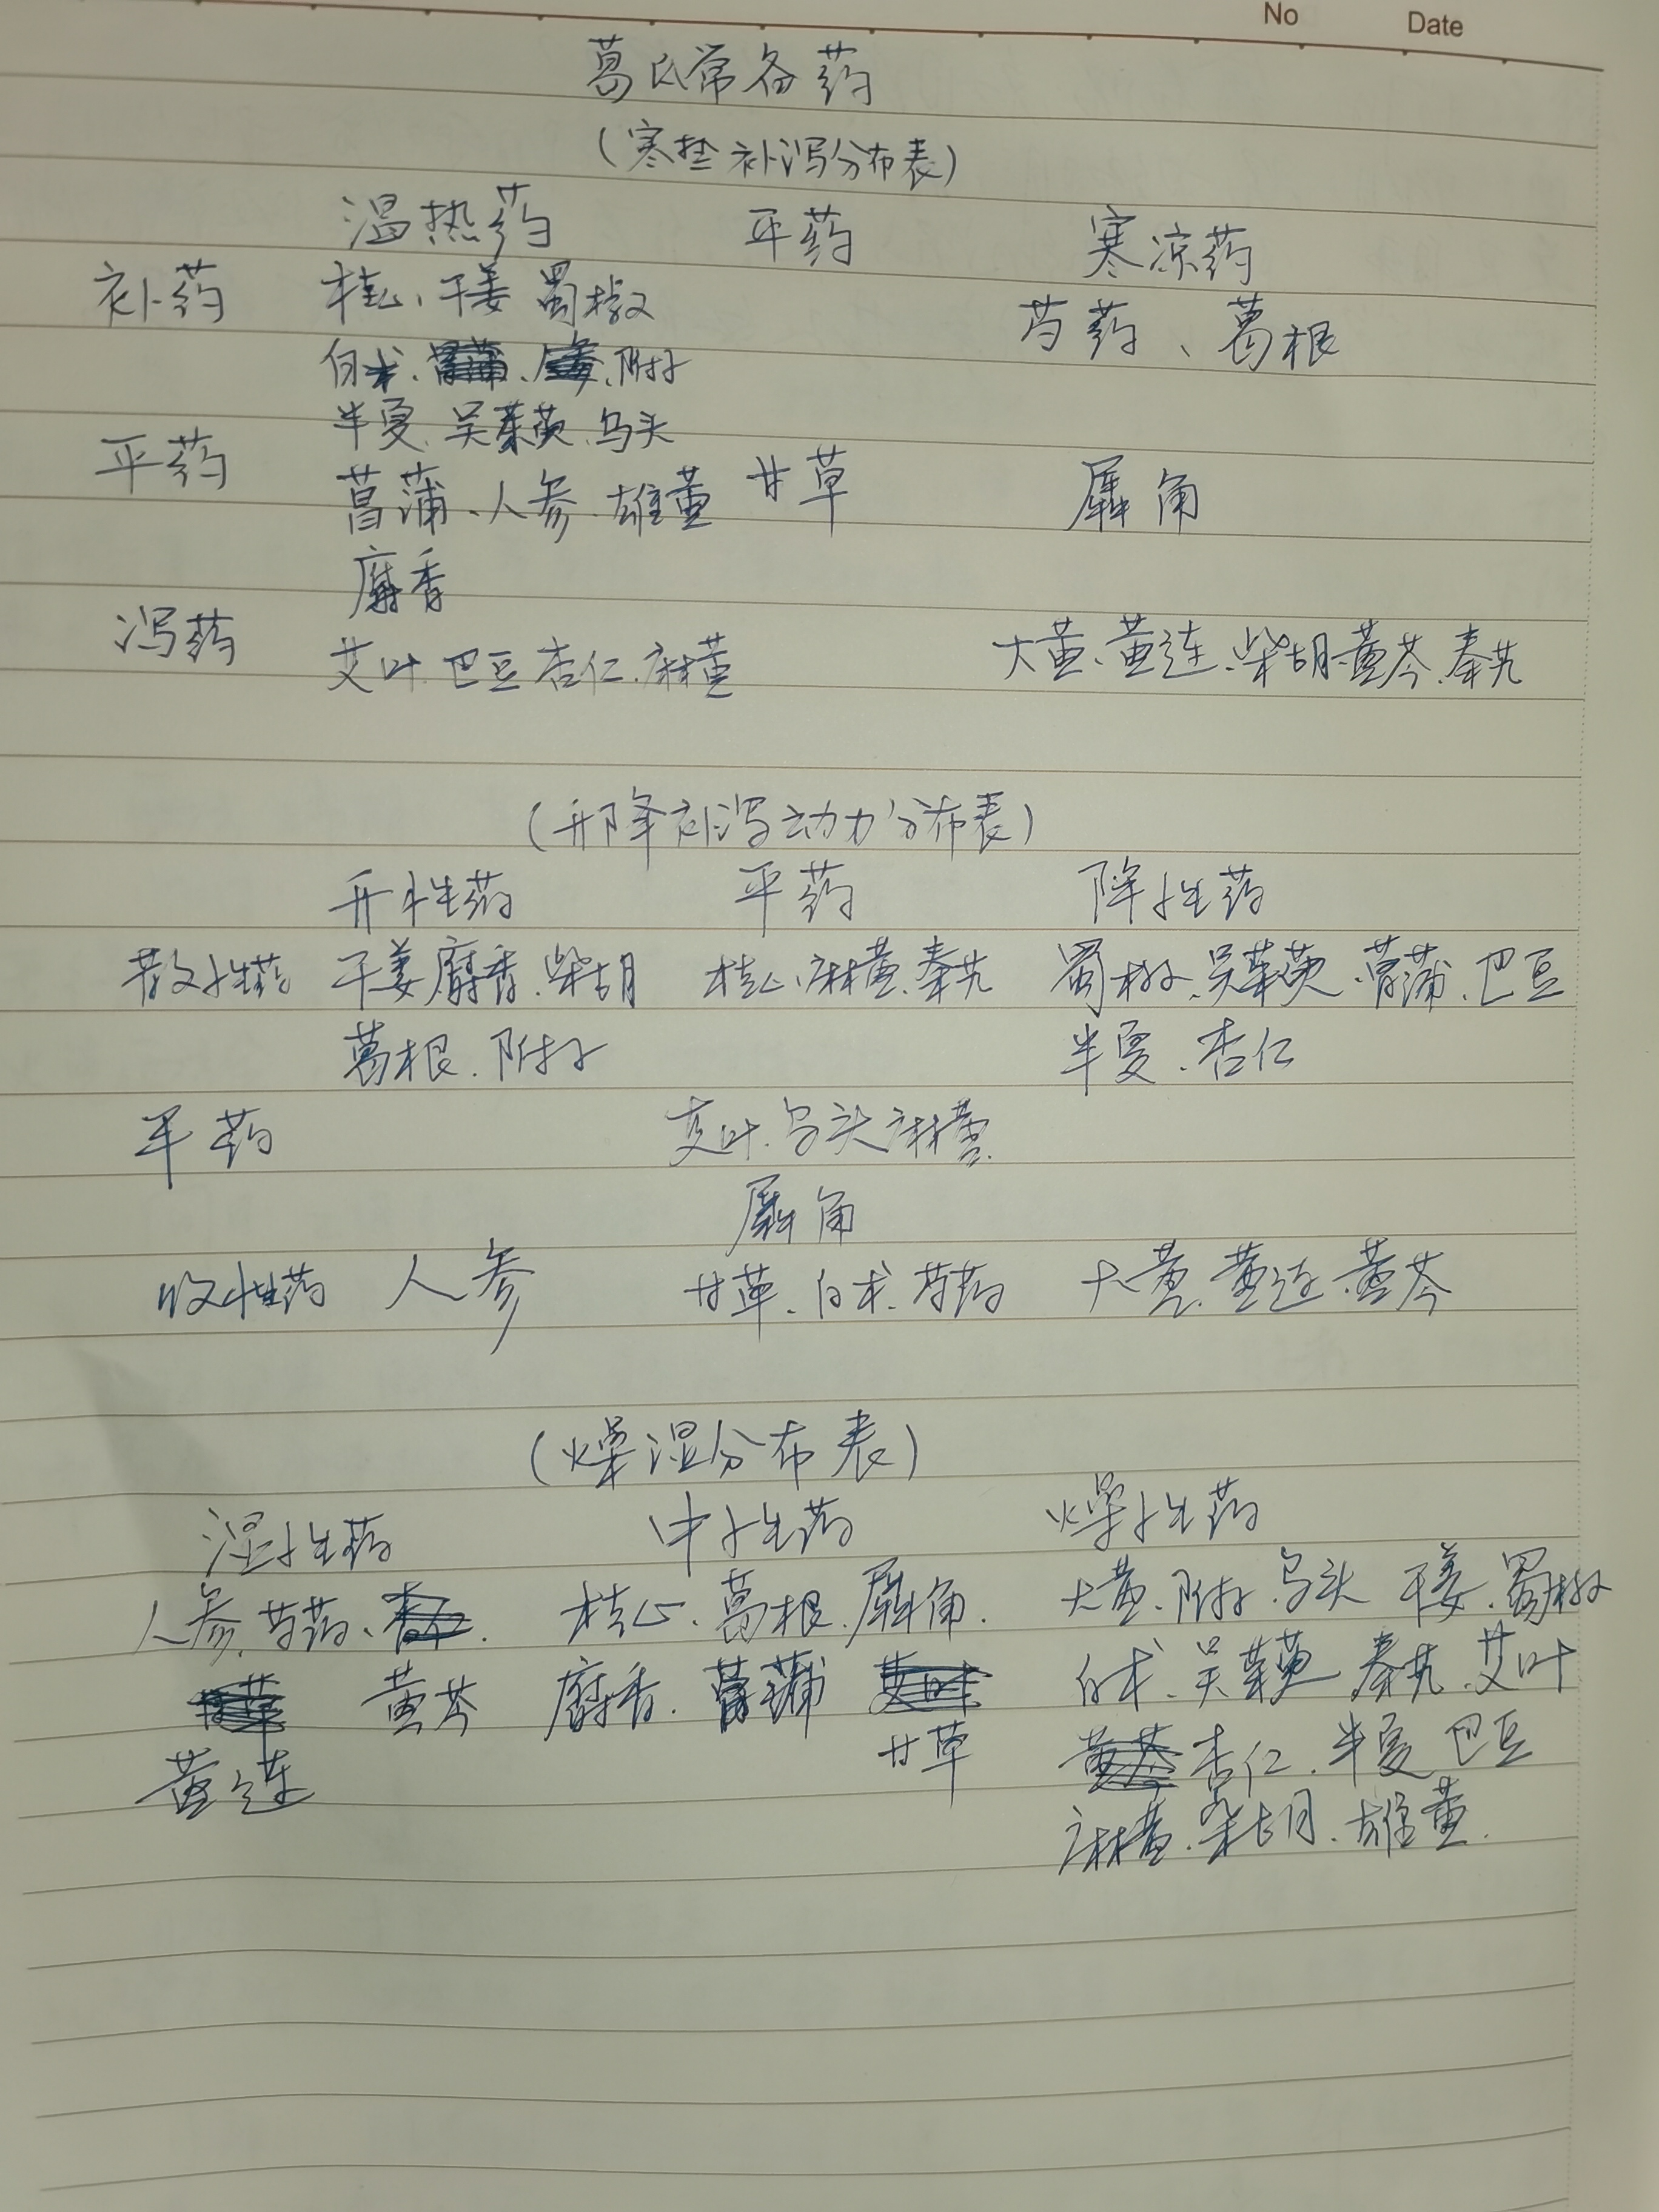 No Date
葛氏常备药
(寒热补泻分布表)
温热药 平药 寒凉药
补药 桂心、干姜 蜀椒 芍药、葛根
白术、附子
半夏、吴茱萸、乌头
平药 菖蒲、人参、雄黄 甘草 犀角
麝香
泻药 艾叶、巴豆 杏仁、麻黄 大黄、黄连、柴胡、黄芩、秦艽
(升降补泻动力分布表)
升性药 平药 降性药
散性药 干姜 麝香、柴胡 桂心、麻黄、秦艽 蜀椒、吴茱萸、菖蒲、巴豆
葛根、附子 半夏、杏仁
平药 艾叶、乌头 麻黄
犀角
收性药 人参 甘草、白术、芍药 大黄、黄连、黄芩
(燥湿分布表)
湿性药 中性药 燥性药
人参、芍药、 桂心、葛根、犀角、 大黄、附子、乌头 干姜、蜀椒
黄芩 麝香、菖蒲 白术、吴茱萸 秦艽、艾叶
黄连 甘草 杏仁、半夏 巴豆
麻黄、柴胡、雄黄.